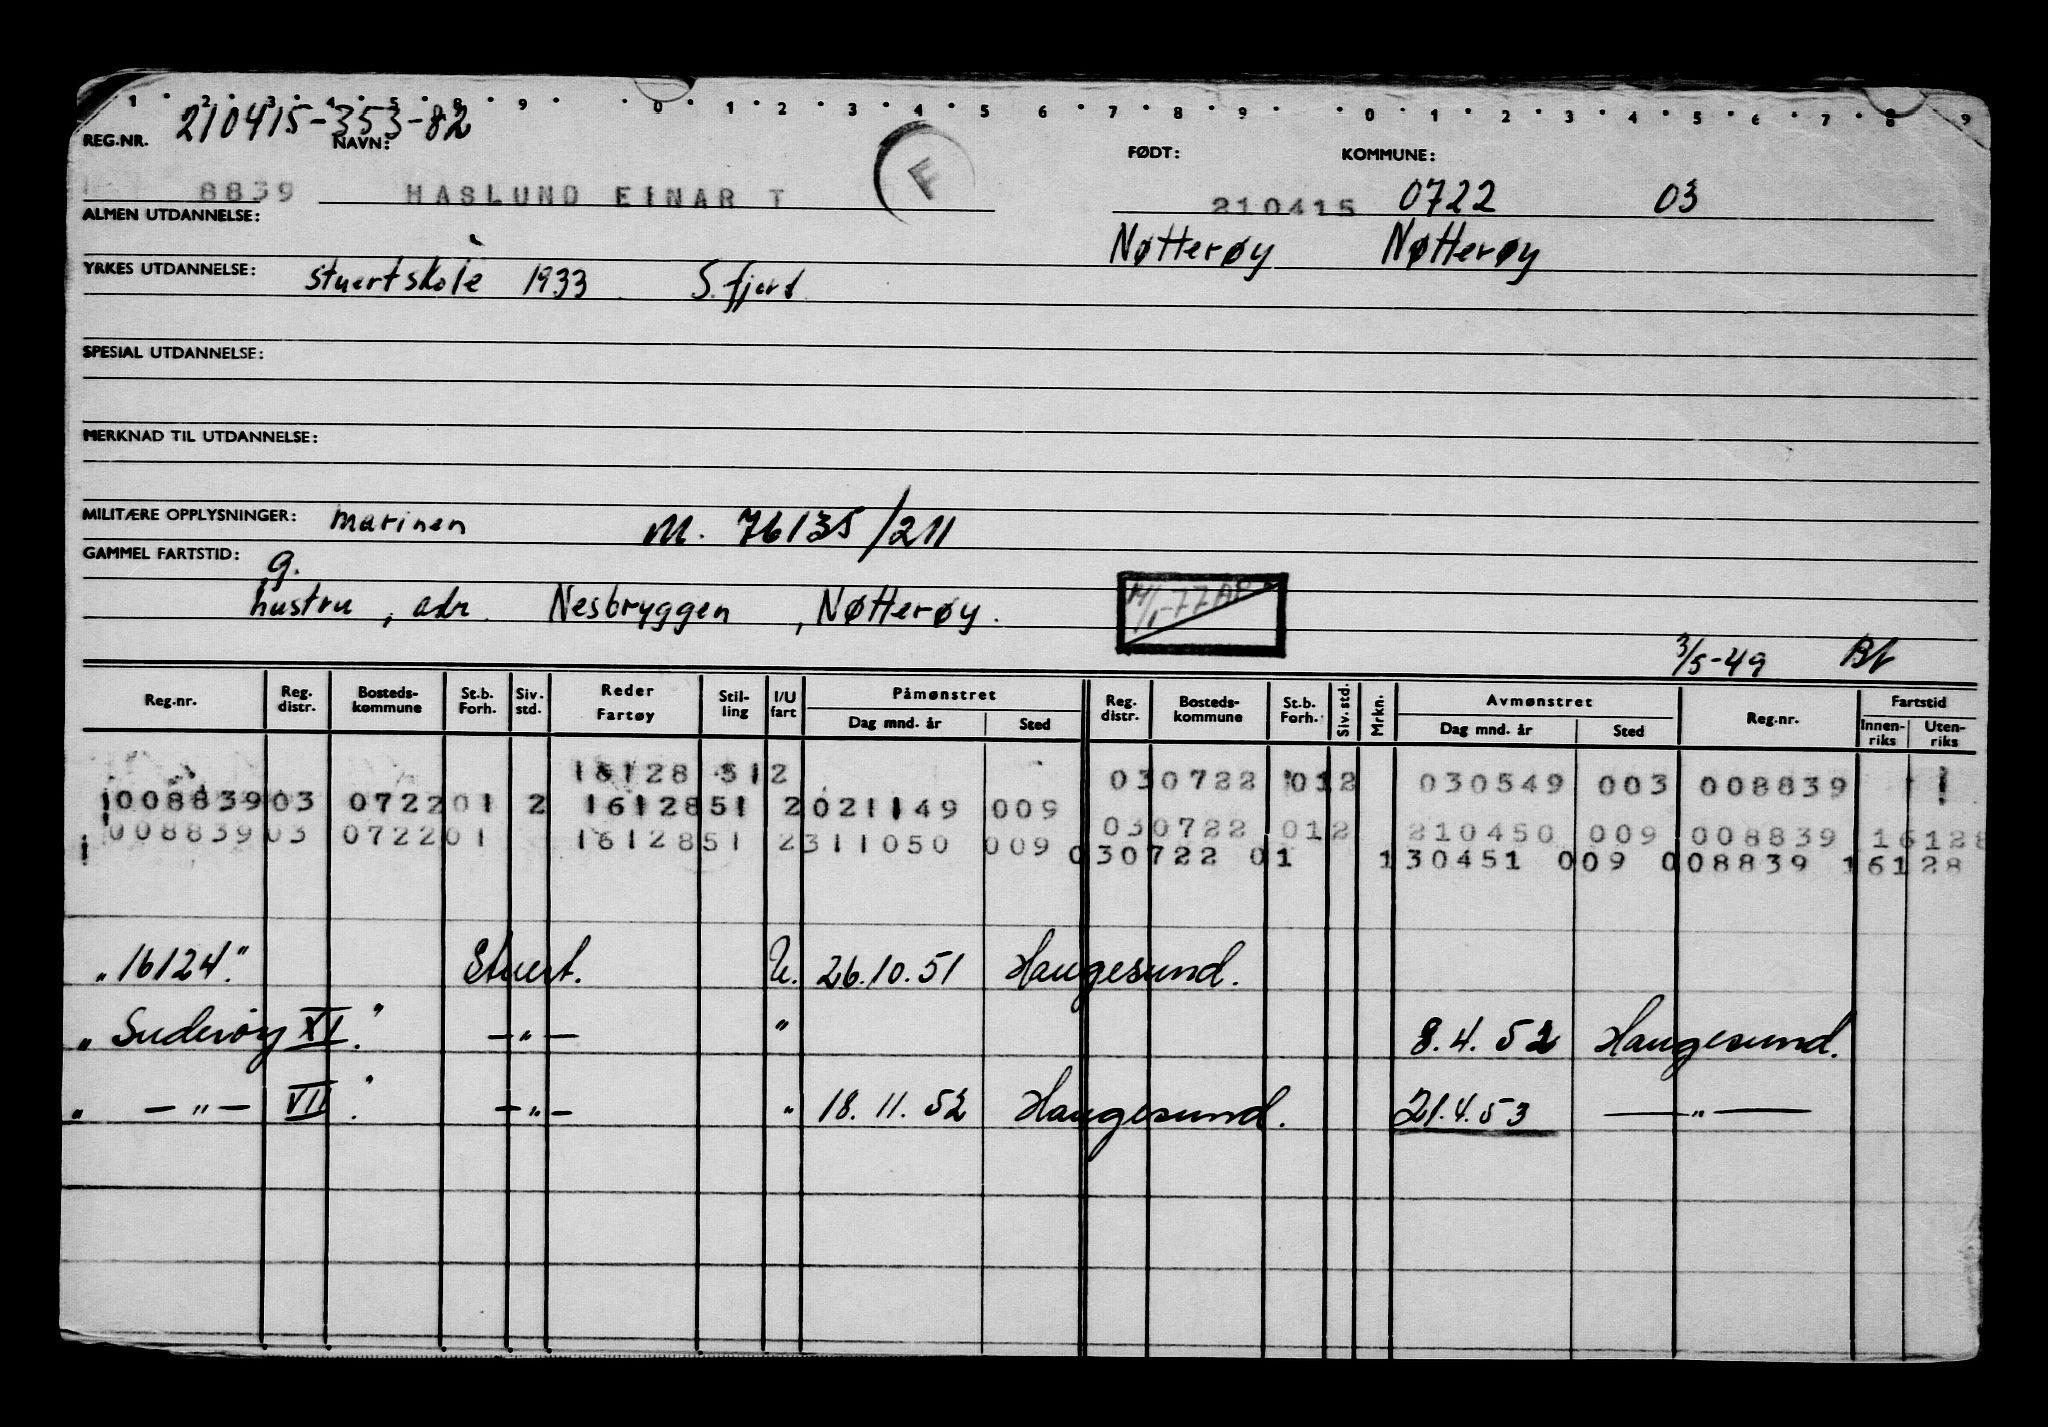 1 2 3 4 5 8 9 0 1 2 3 4 5 6 7 8 9 0 1 2 3 4 5 6 7 8 9
REG.NR. 210415-353-82 NAVN: FØDT: KOMMUNE:
8839 HASLUND EINAR T F 210415 0722 03
ALMEN UTDANNELSE: Nøtterøy Nøtterøy
YRKES UTDANNELSE: stuertskole 1933 S.fjord
SPESIAL UTDANNELSE:
MERKNAD TIL UTDANNELSE:
MILITÆRE OPPLYSNINGER: marinen M. 76135/211
GAMMEL FARTSTID: g.
hustru, adr. Nesbryggen, Nøtterøy.
3/5-49
Reg.nr. Reg. distr. Bosteds-kommune St.b. Forh. Siv. std. Reder Fartøy Stil-ling I/U fart Påmønstret Dag mnd. år Sted Reg. distr. Bosteds-kommune St.b. Forh. Siv. std. Mrkn. Avmønstret Dag mnd. år Sted Reg.nr. Fartstid Innen-riks Uten-riks
16128 512 030722 012 030549 003 008839
008839 03 0722 01 2 16128 51 2 021149 009 030722 012 210450 009 008839 16128
008839 03 0722 01 16128 51 2 311050 009 030722 01 130451 009 008839 16128
„16124." Stuert. U. 26.10.51 Haugesund.
„Suderøy XI." —„— " 8.4.52 Haugesund.
„ —„— VII." —„— " 18.11.52 Haugesund. 21.4.53 —„—